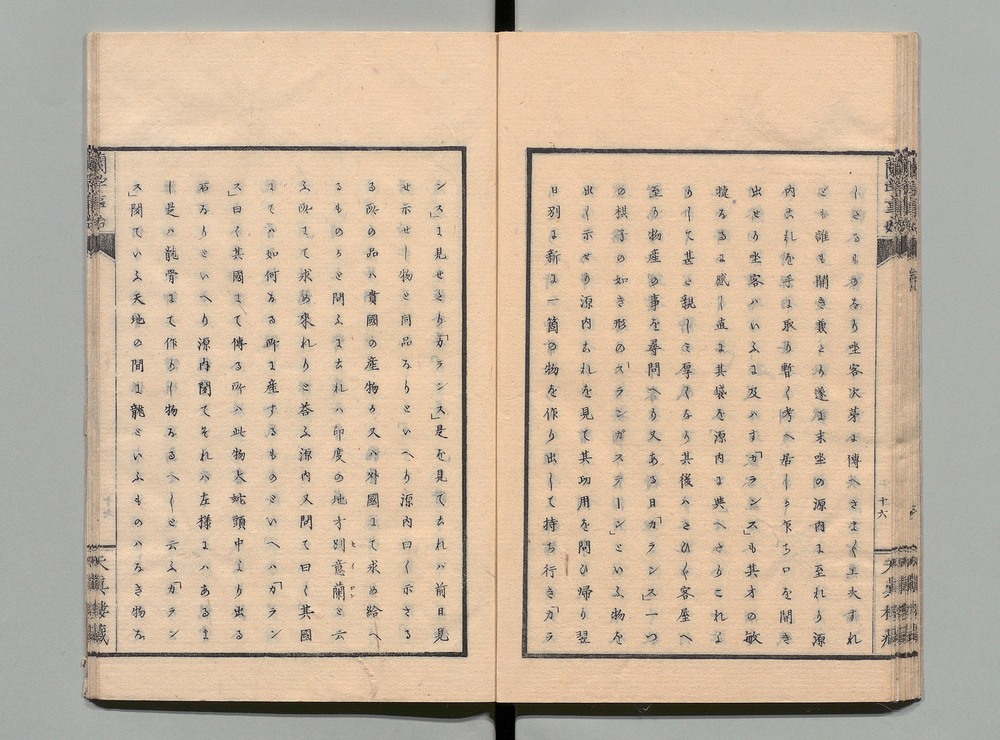 しさるものなり坐客次第に傳へさまく工夫すれ
とも誰も開き兼たり遂に末坐の源内に至れり源
内これを手に取り暫く考へ居しか乍ち口を開き
出せり坐客ハいふに及ハす「カランス」も其才の敏
捷なるに感し直に其袋を源内に與へたりこれよ
りして甚と親しミ厚くなり其後ハたひく客屋へ
至り物産の事を尋問へり又ある日「カランス」一つ
の棋子の如き形の「スランガステーン」といふ物を
出し示せり源内これを見て其功用を問ひ帰り翌
日別に新に一箇の物を作り出して持ち行き「カラ
十六
ンス」に見せたり「カランス」是を見てこれハ前日見
せ示せし物と同品なりといへり源内曰く示さる
る所の品ハ貴國の産物か又ハ外國にて求め給へ
るものかと問ふにこれハ印度の地方則意蘭と云
ふ所にて求め來れりと答ふ源内又問て曰く其國
にてハ如何なる所に産するものといへハ「カラン
ス」曰く其國にて傳る所ハ此物大蛇頭中より出る
石なりといへり源内聞てそれハ左様にハあるま
し是ハ龍骨にて作りし物なるへしと云ふ「カラン
ス」聞ていふ天地の間に龍といふものハなき物な
天真樓藏